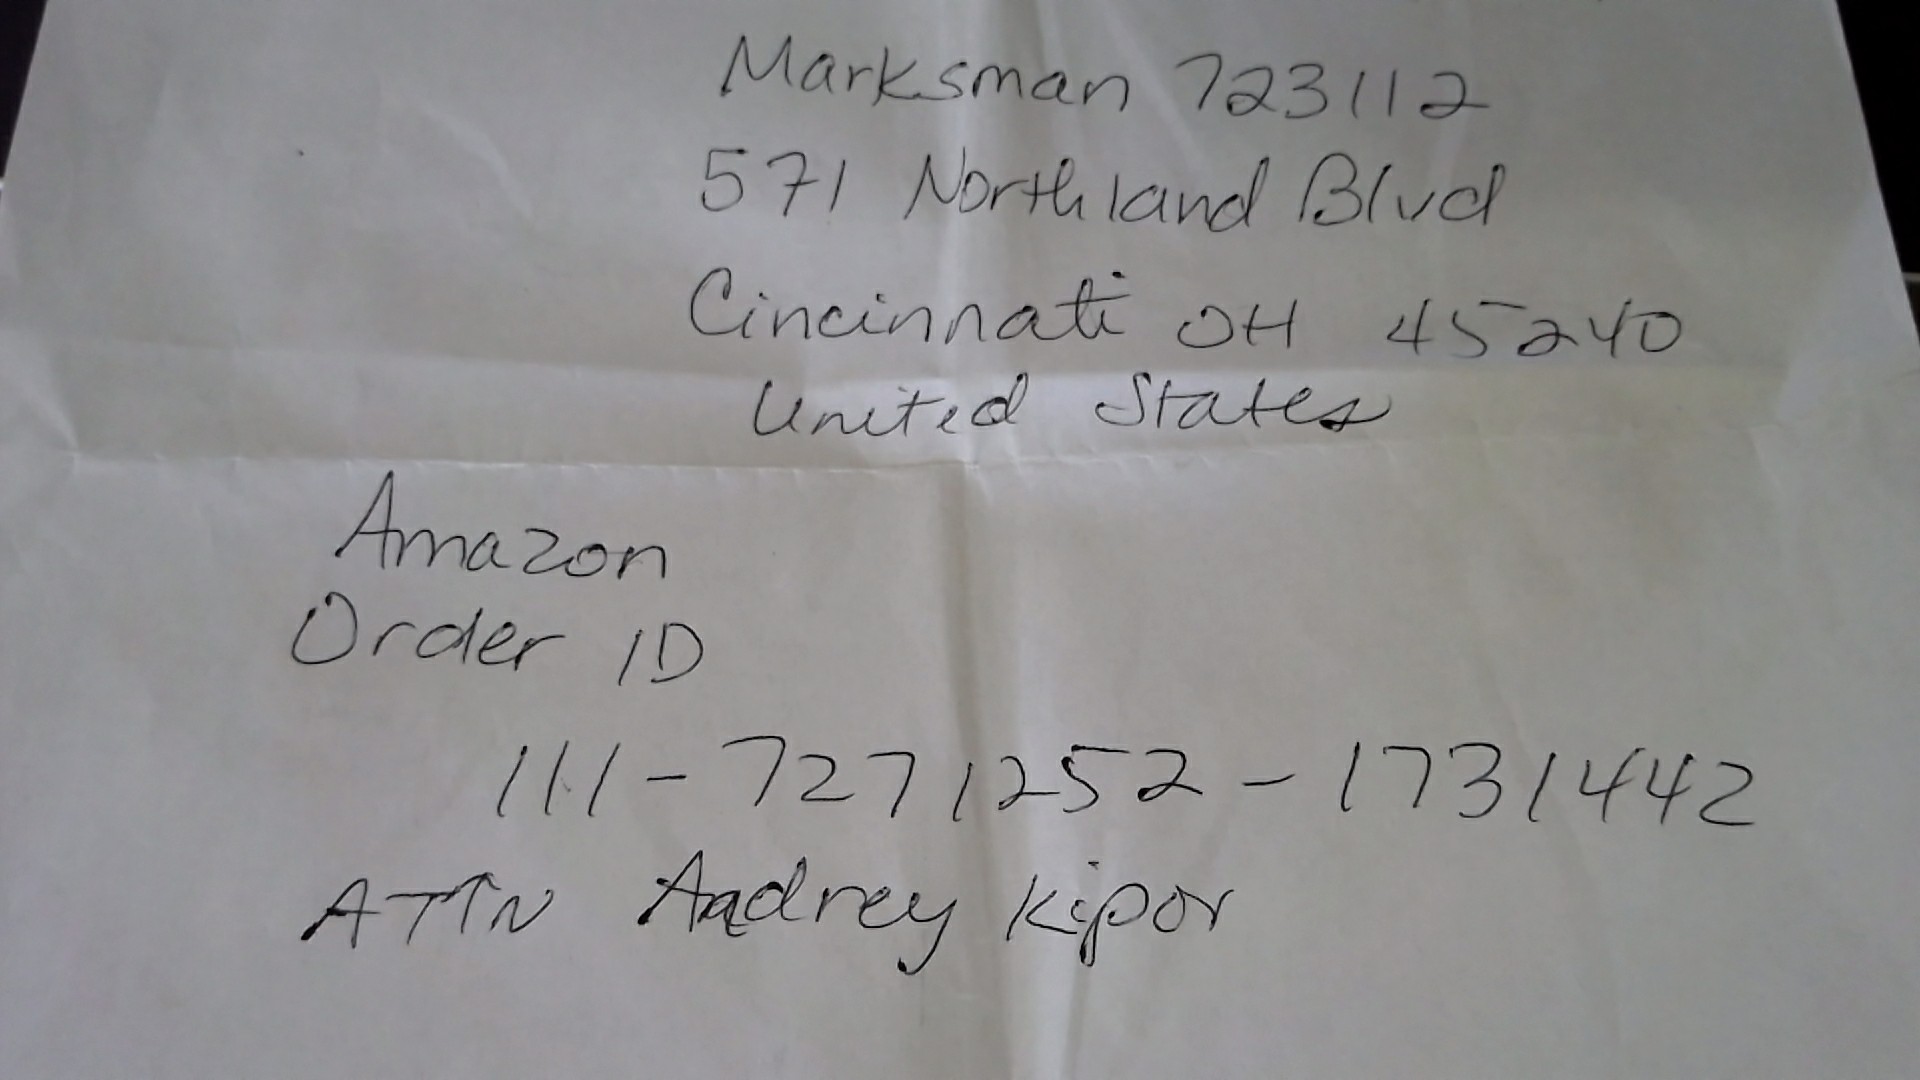 Marksman 723112
571 Northland Blvd
Cincinnati OH 45240
United States
Amazon
Order ID
111-7271252-1731442
ATTN Andrey Kipor